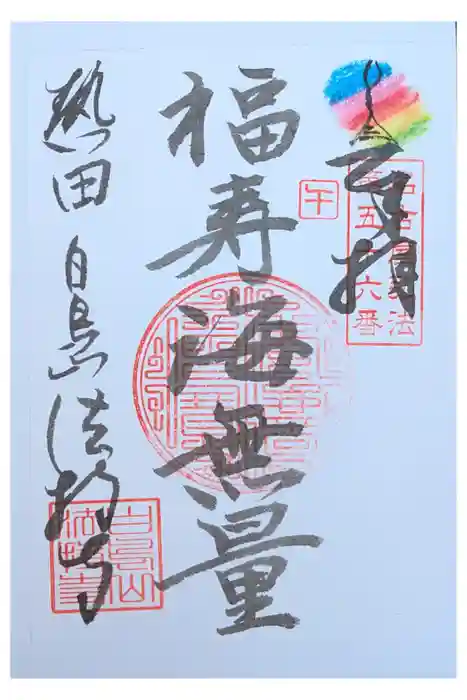 奉拝
午
福寿海無量
熱田 白鳥山 法持寺
白鳥山
法持寺